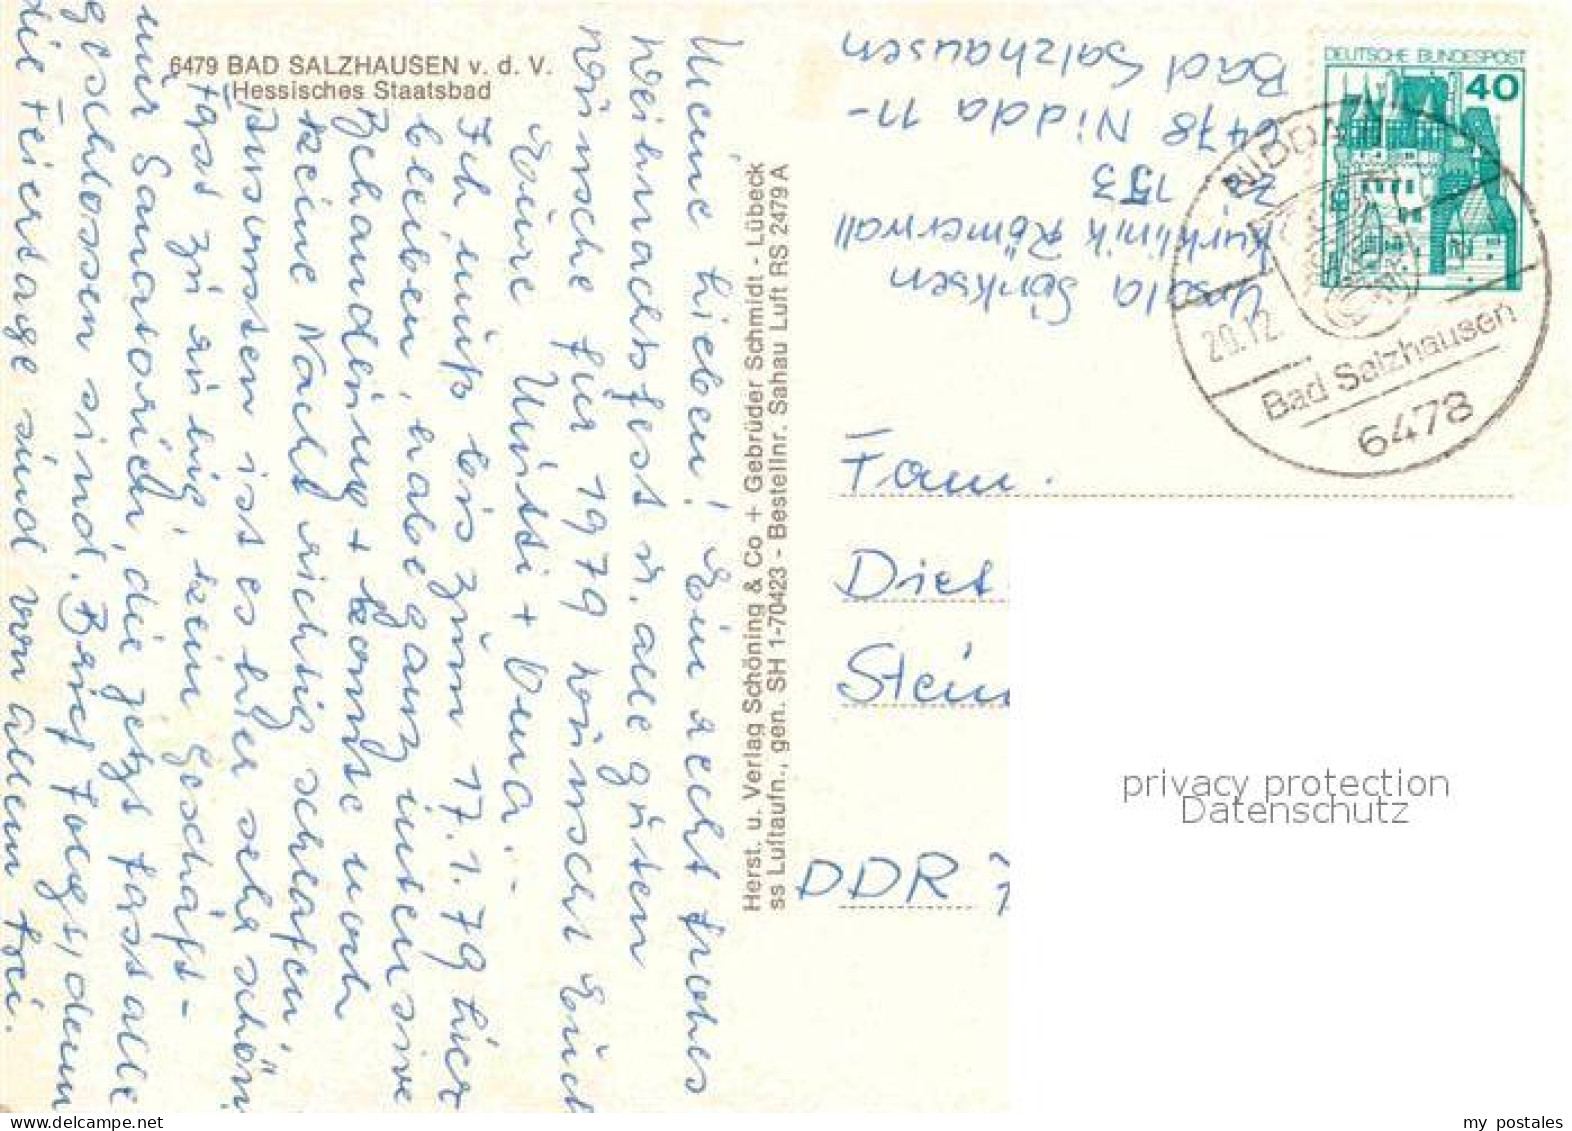 6479 BAD SALZHAUSEN v. d. V.
Hessisches Staatsbad
Meine Lieben! Ein recht frohes
Weihnachtsfest u. alle guten
Wünsche für 1979 wünscht Euch
Eure Mutti + Oma.-
Ich muß bis zum 17.1.79 hier
bleiben, habe ganz intensive
Behandlung + konnte noch
keine Nacht richtig schlafen.
Ausserdem ist es hier sehr schön
fast zu ruhig, kein Geschäft-
nur Sanatorien, die jetzt fast alle
geschlossen sind. Brief folgt, denn
die Feiertage sind von allem frei.
Herst. u. Verlag Schöning & Co + Gebrüder Schmidt - Lübeck
ss Luftaufn., gen. SH 1-70423 - Bestellnr. Sahau Luft RS 2479 A
Ursula Sönksen
Kurklinik Römerwall
Z. 153
6478 Nidda 11-
Bad Salzhausen
DEUTSCHE BUNDESPOST
40
NIDDA
20.12
Bad Salzhausen
6478
Fam.
Diet
Stein
DDR
privacy protection
Datenschutz
my postales